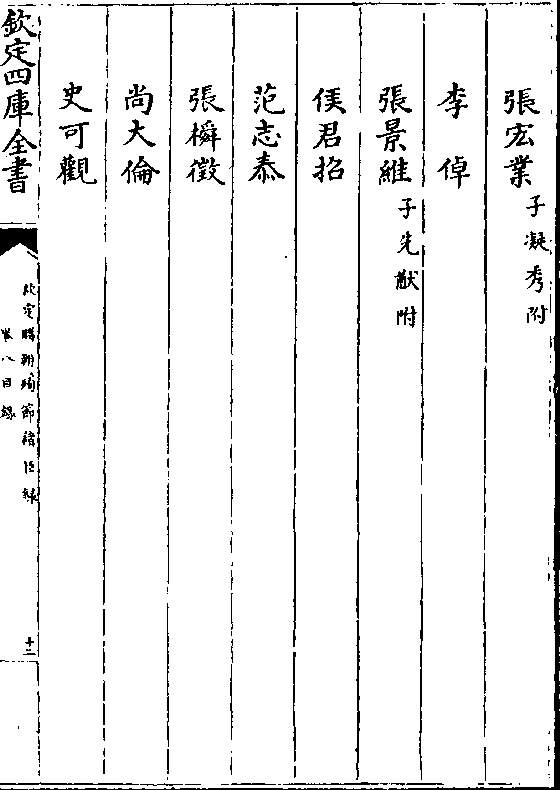 張宏業子凝秀附
李倬
張景維子先猷附
侯君招
范志泰
張橓徴
尚大倫
史可觀
欽定四庫全書
欽定勝朝殉節諸臣録
卷八目録
十二